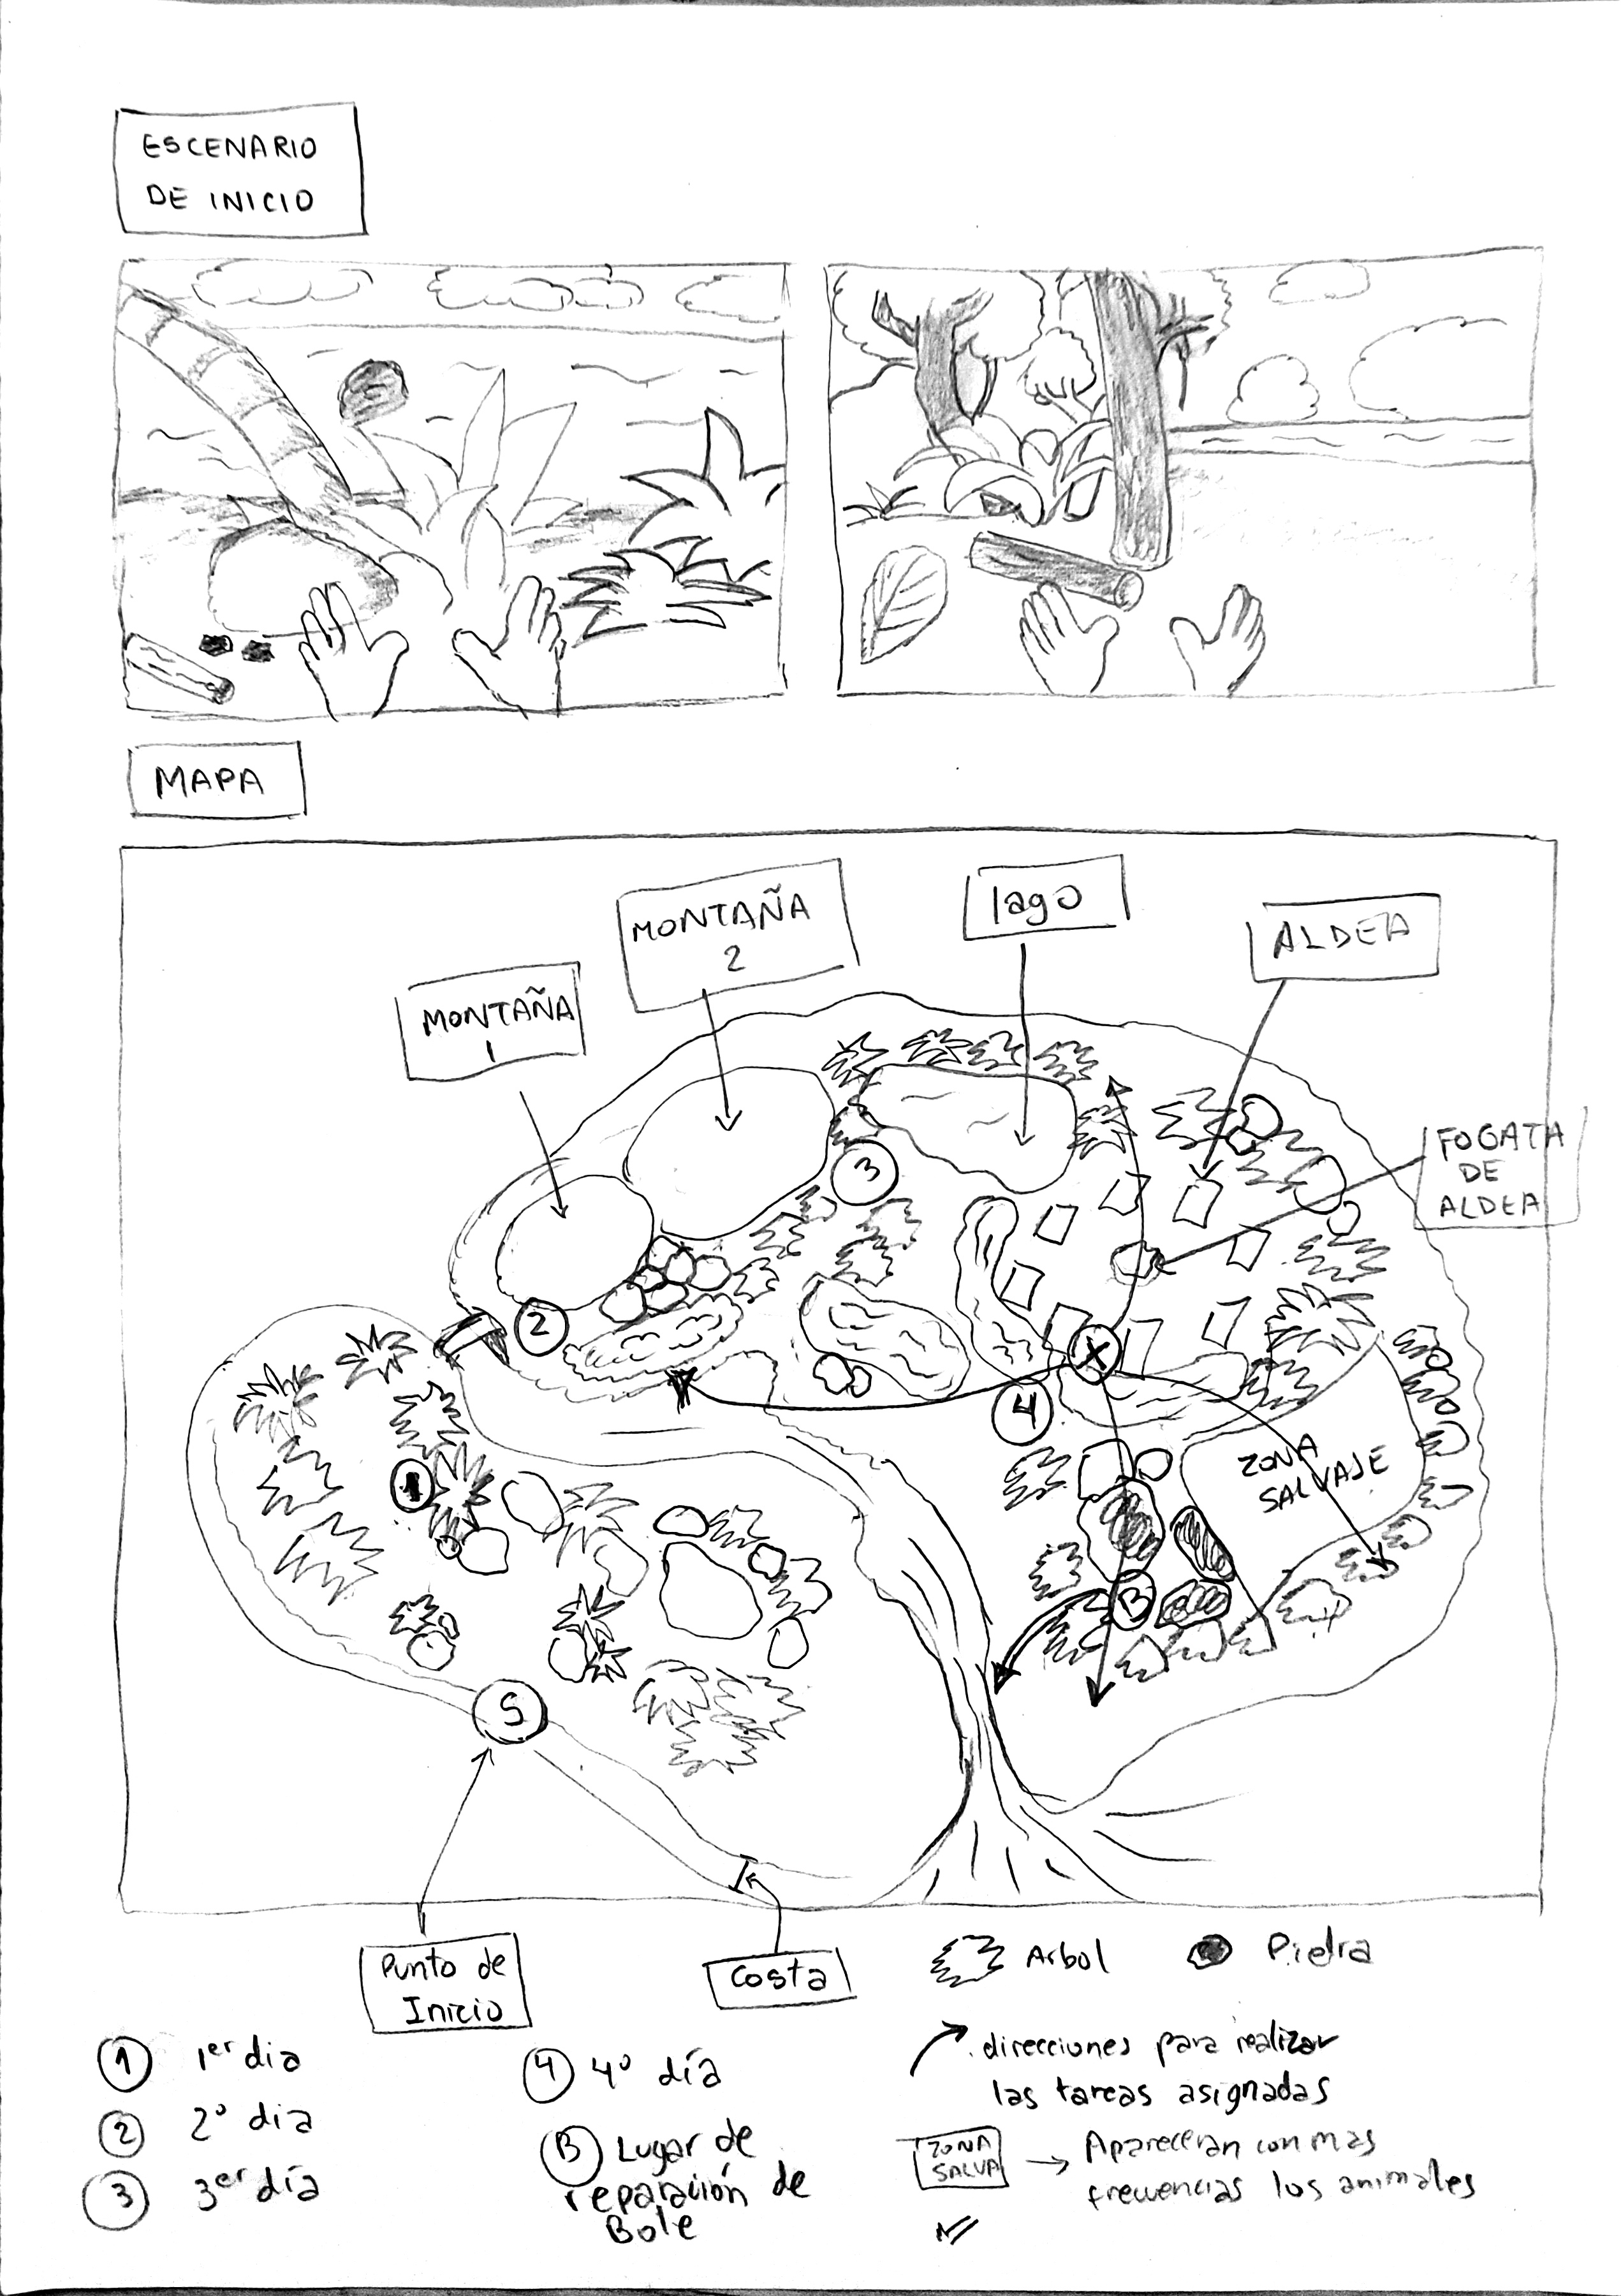 ESCENARIO
DE INICIO
MAPA
MONTAÑA
1
MONTAÑA
2
lago
ALDEA
FOGATA
DE
ALDEA
3
2
X
4
1
ZONA
SALVAJE
B
S
Punto de
Inicio
Costa
Arbol
Piedra
1 1er dia
2 2º dia
3 3er día
4 4º día
B Lugar de
reparación de
Bole
direcciones para realizar
las tareas asignadas
ZONA
SALVA
Apareceran con mas
frecuencias los animales